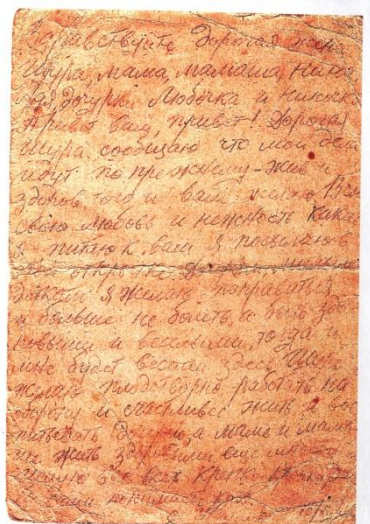 Здравствуйте дорогая жена
Шура, мама, мамаша, Нина
дочурки Любочка и Ниночка
Привет вам, привет! Дорогая
Шура сообщаю что мои дела
идут по прежнему - жив и
здоров, того и вам желаю. Всю
свою любовь и нежность какую
я питаю к вам я посылаю в
открытке.
я желаю поправиться
и больше не болеть, а быть здо
ровыми и веселыми, тогда и
мне будет весело здесь.
желаю плодотворно работать на
оборону и счастливее жить и вос
питывать а маме и мамаше
жить здоровыми еще много
вас всех крепко